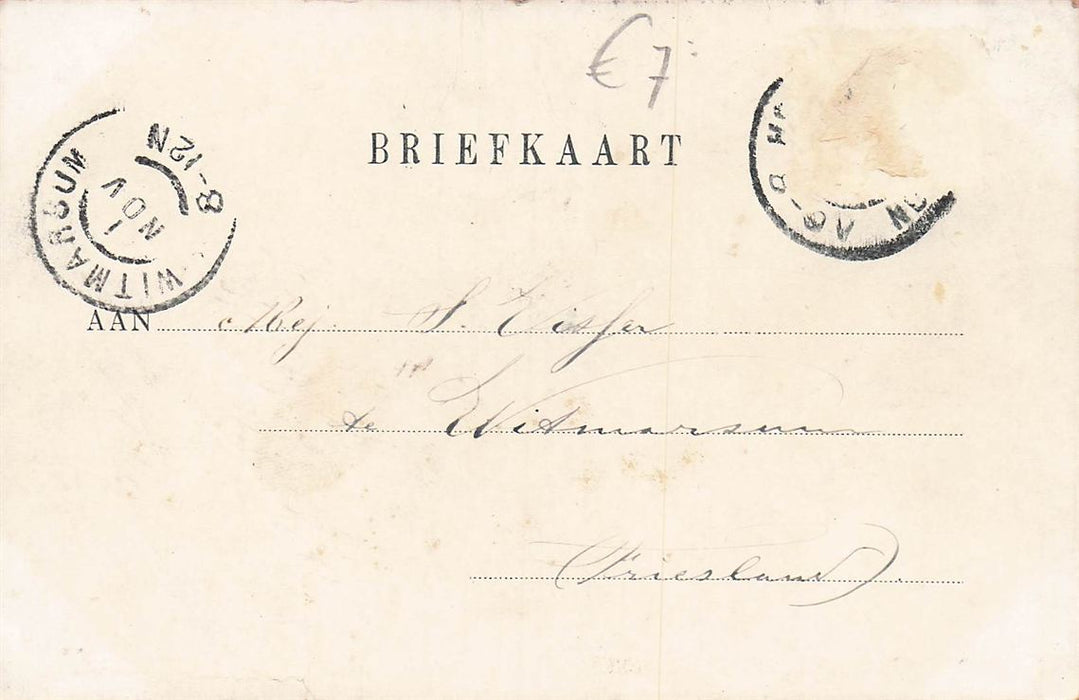 €7
BRIEFKAART
WITMARSUM
1 NOV
8-12N
AAN Mej. S. Visser
te Witmarsum
(Friesland).